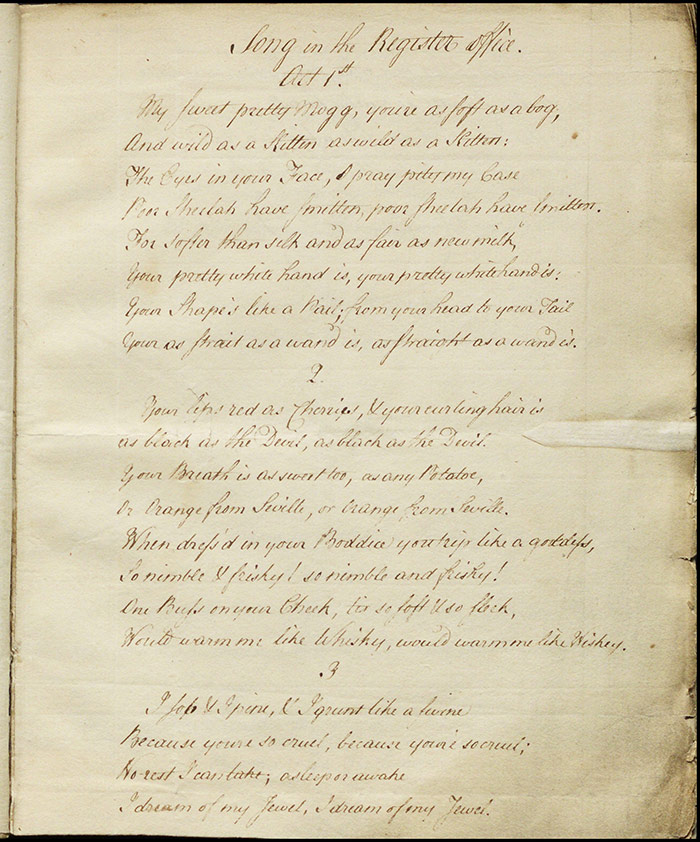 Song in the Register office.
Act 1st.
My sweet pretty Mogg, you're as soft as a bog,
And wild as a Kitten as wild as a Kitten:
The Eyes in your Face, I pray pity my Case
Poor Sheelah have smitten, poor Sheelah have smitten.
For softer than silk and as fair as new milk,
Your pretty white hand is, your pretty white hand is:
Your Shape's like a Pail, from your head to your Tail
Your as strait as a wand is, as straight as a wand is.
2
Your lips red as Cherries, & your curling hair is
as black as the Devil, as black as the Devil.
Your Breath is as sweet too, as any Potatoe,
Or Orange from Seville, or Orange from Seville.
When dress'd in your Boddice you trip like a goddess,
So nimble & frisky! so nimble and frisky!
One Buss on your Cheek, tis so soft & so sleek,
Would warm me like Whisky, would warm me like Wiskey.
3
I sob & I pine, & I grunt like a swine
Because you're so cruel, because you're so cruel;
No rest I can take, asleep or awake
I dream of my Jewel, I dream of my Jewel.